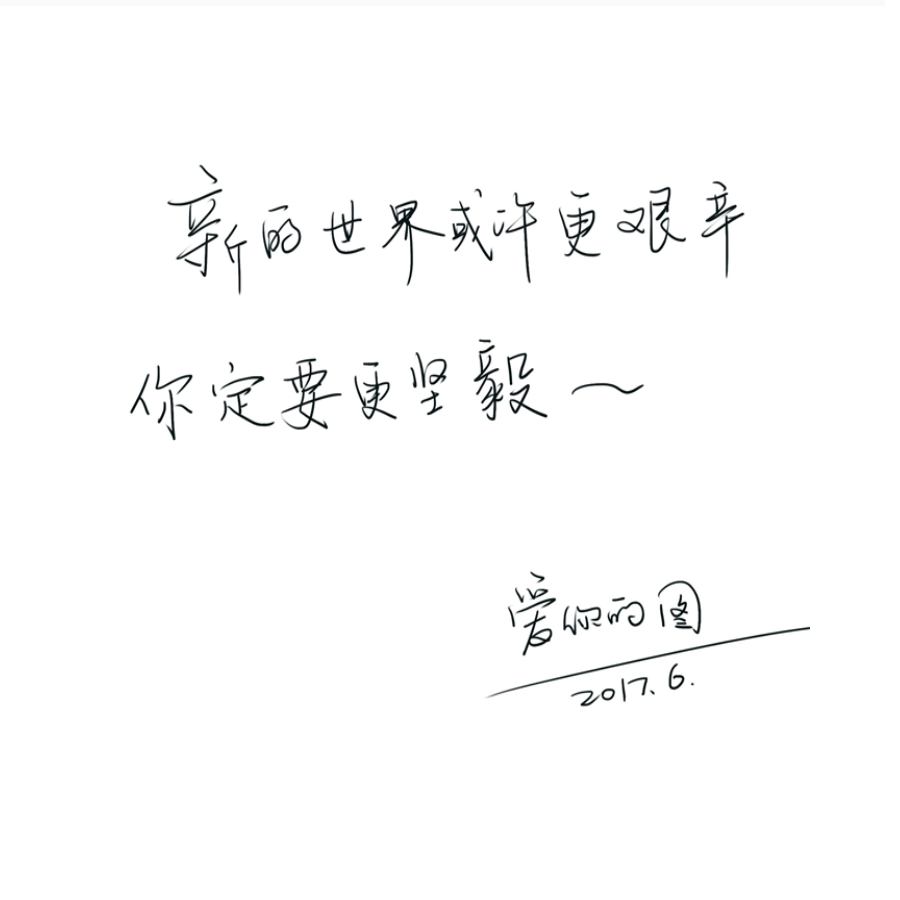 新的世界或许更艰辛
你定要更坚毅~
爱你的图
2017.6.